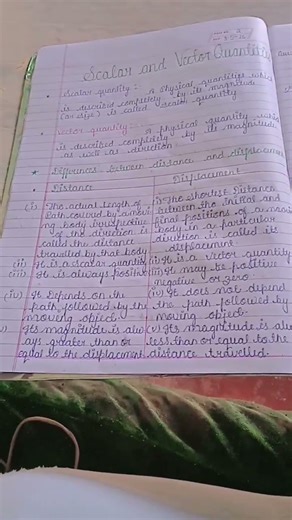 Scalar and Vector Quantity
Scalar quantity :- A physical quantities which
is described completely by its magnitude
(or size) is called scalar quantity
Vector quantity :- A physical quantity which
is described completely by its magnitude
as well as direction.
Differences between distance and displacement
Distance
Displacement
(i) The actual length of
Path covered by a movi
ng body irrespective
of the direction is
called the distance
travelled by that body
(i) The shortest distance
between the initial and
final positions of a movin
body in a particular
direction is called its
displacement.
(ii) It is a scalar quantity
(ii) It is a vector quantity
(iii) It is always positive
(iii) It may be positive
negative or zero
(iv) It Depends on the
path followed by the
moving object.
(iv) It does not depend
the path followed by
moving object.
Its magnitude is alw
ays greater than or
equal to the displacement
(v) Its magnitude is alw
less than or equal to the
distance travelled.